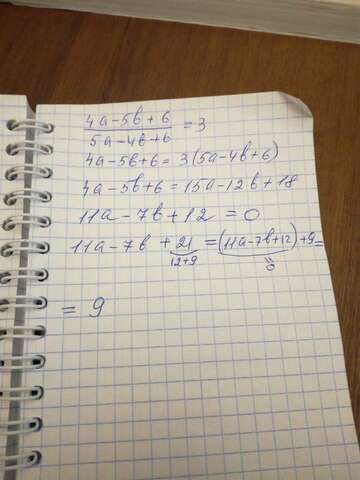 4a-5b+6/5a-4b+6 = 3
4a-5b+6 = 3(5a-4b+6)
4a-5b+6 = 15a-12b+18
11a-7b+12 = 0
11a-7b+21 = (11a-7b+12)+9=
12+9 0
= 9